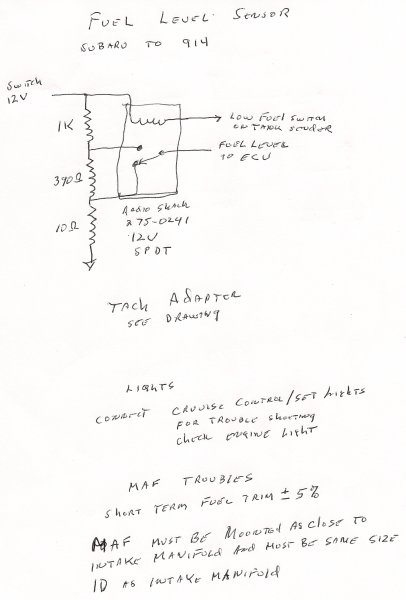 FUEL LEVEL SENSOR
SUBARU TO 914
SWITCH
12V
1K
LOW FUEL SWITCH
ON TANK SENDER
FUEL LEVEL
TO ECU
390Ω
10Ω
RADIO SHACK
275-0241
12V
SPDT
TACH ADAPTER
SEE DRAWING
LIGHTS
CONNECT CRUUISE CONTROL/SET LIGHTS
FOR TROUBLE SHOOTING
CHECK ENGINE LIGHT
MAF TROUBLES
SHORT TERM FUEL TRIM ± 5%
MAF MUST BE MOUNTED AS CLOSE TO
INTAKE MANIFOLD AND MUST BE SAME SIZE
ID AS INTAKE MANIFOLD